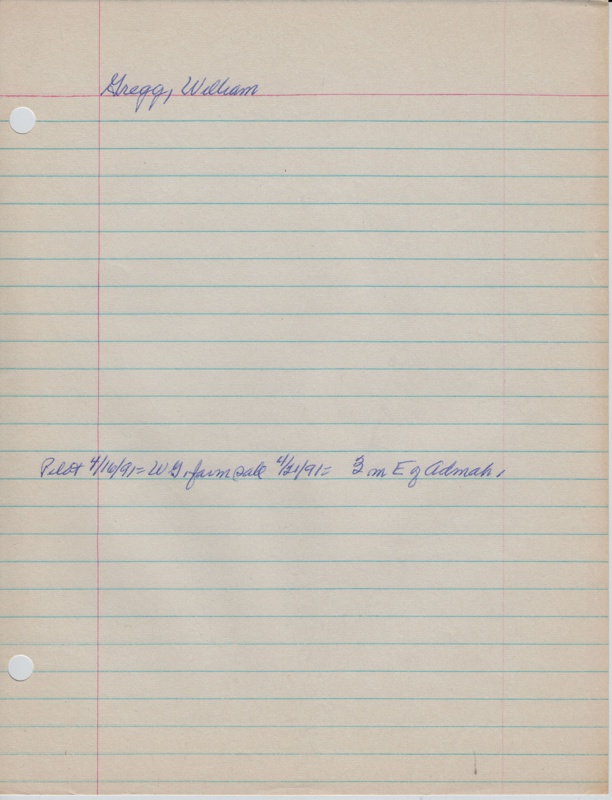 Gregg, William
Pilot 4/16/91= W G. farm sale 4/21/91= 3 m E of Admah.